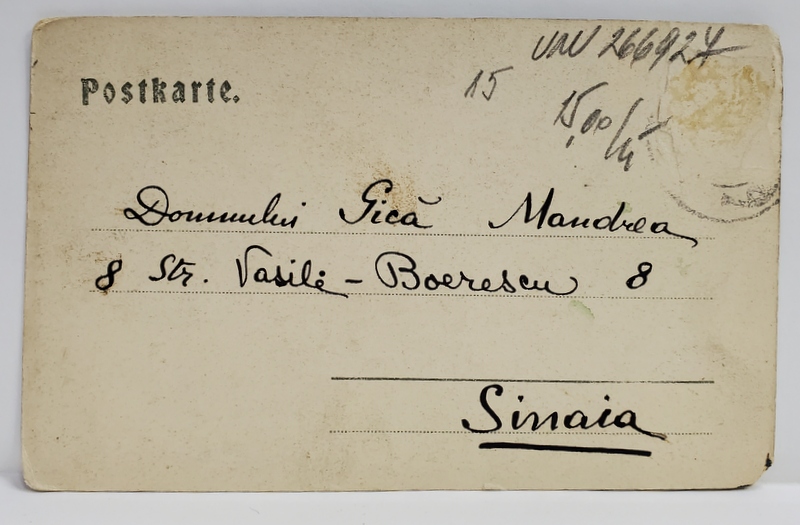 Postkarte.
VAV 266927
15
15,00/
Domnului Gică Mandrea
8 Str. Vasile-Boerescu 8
Sinaia